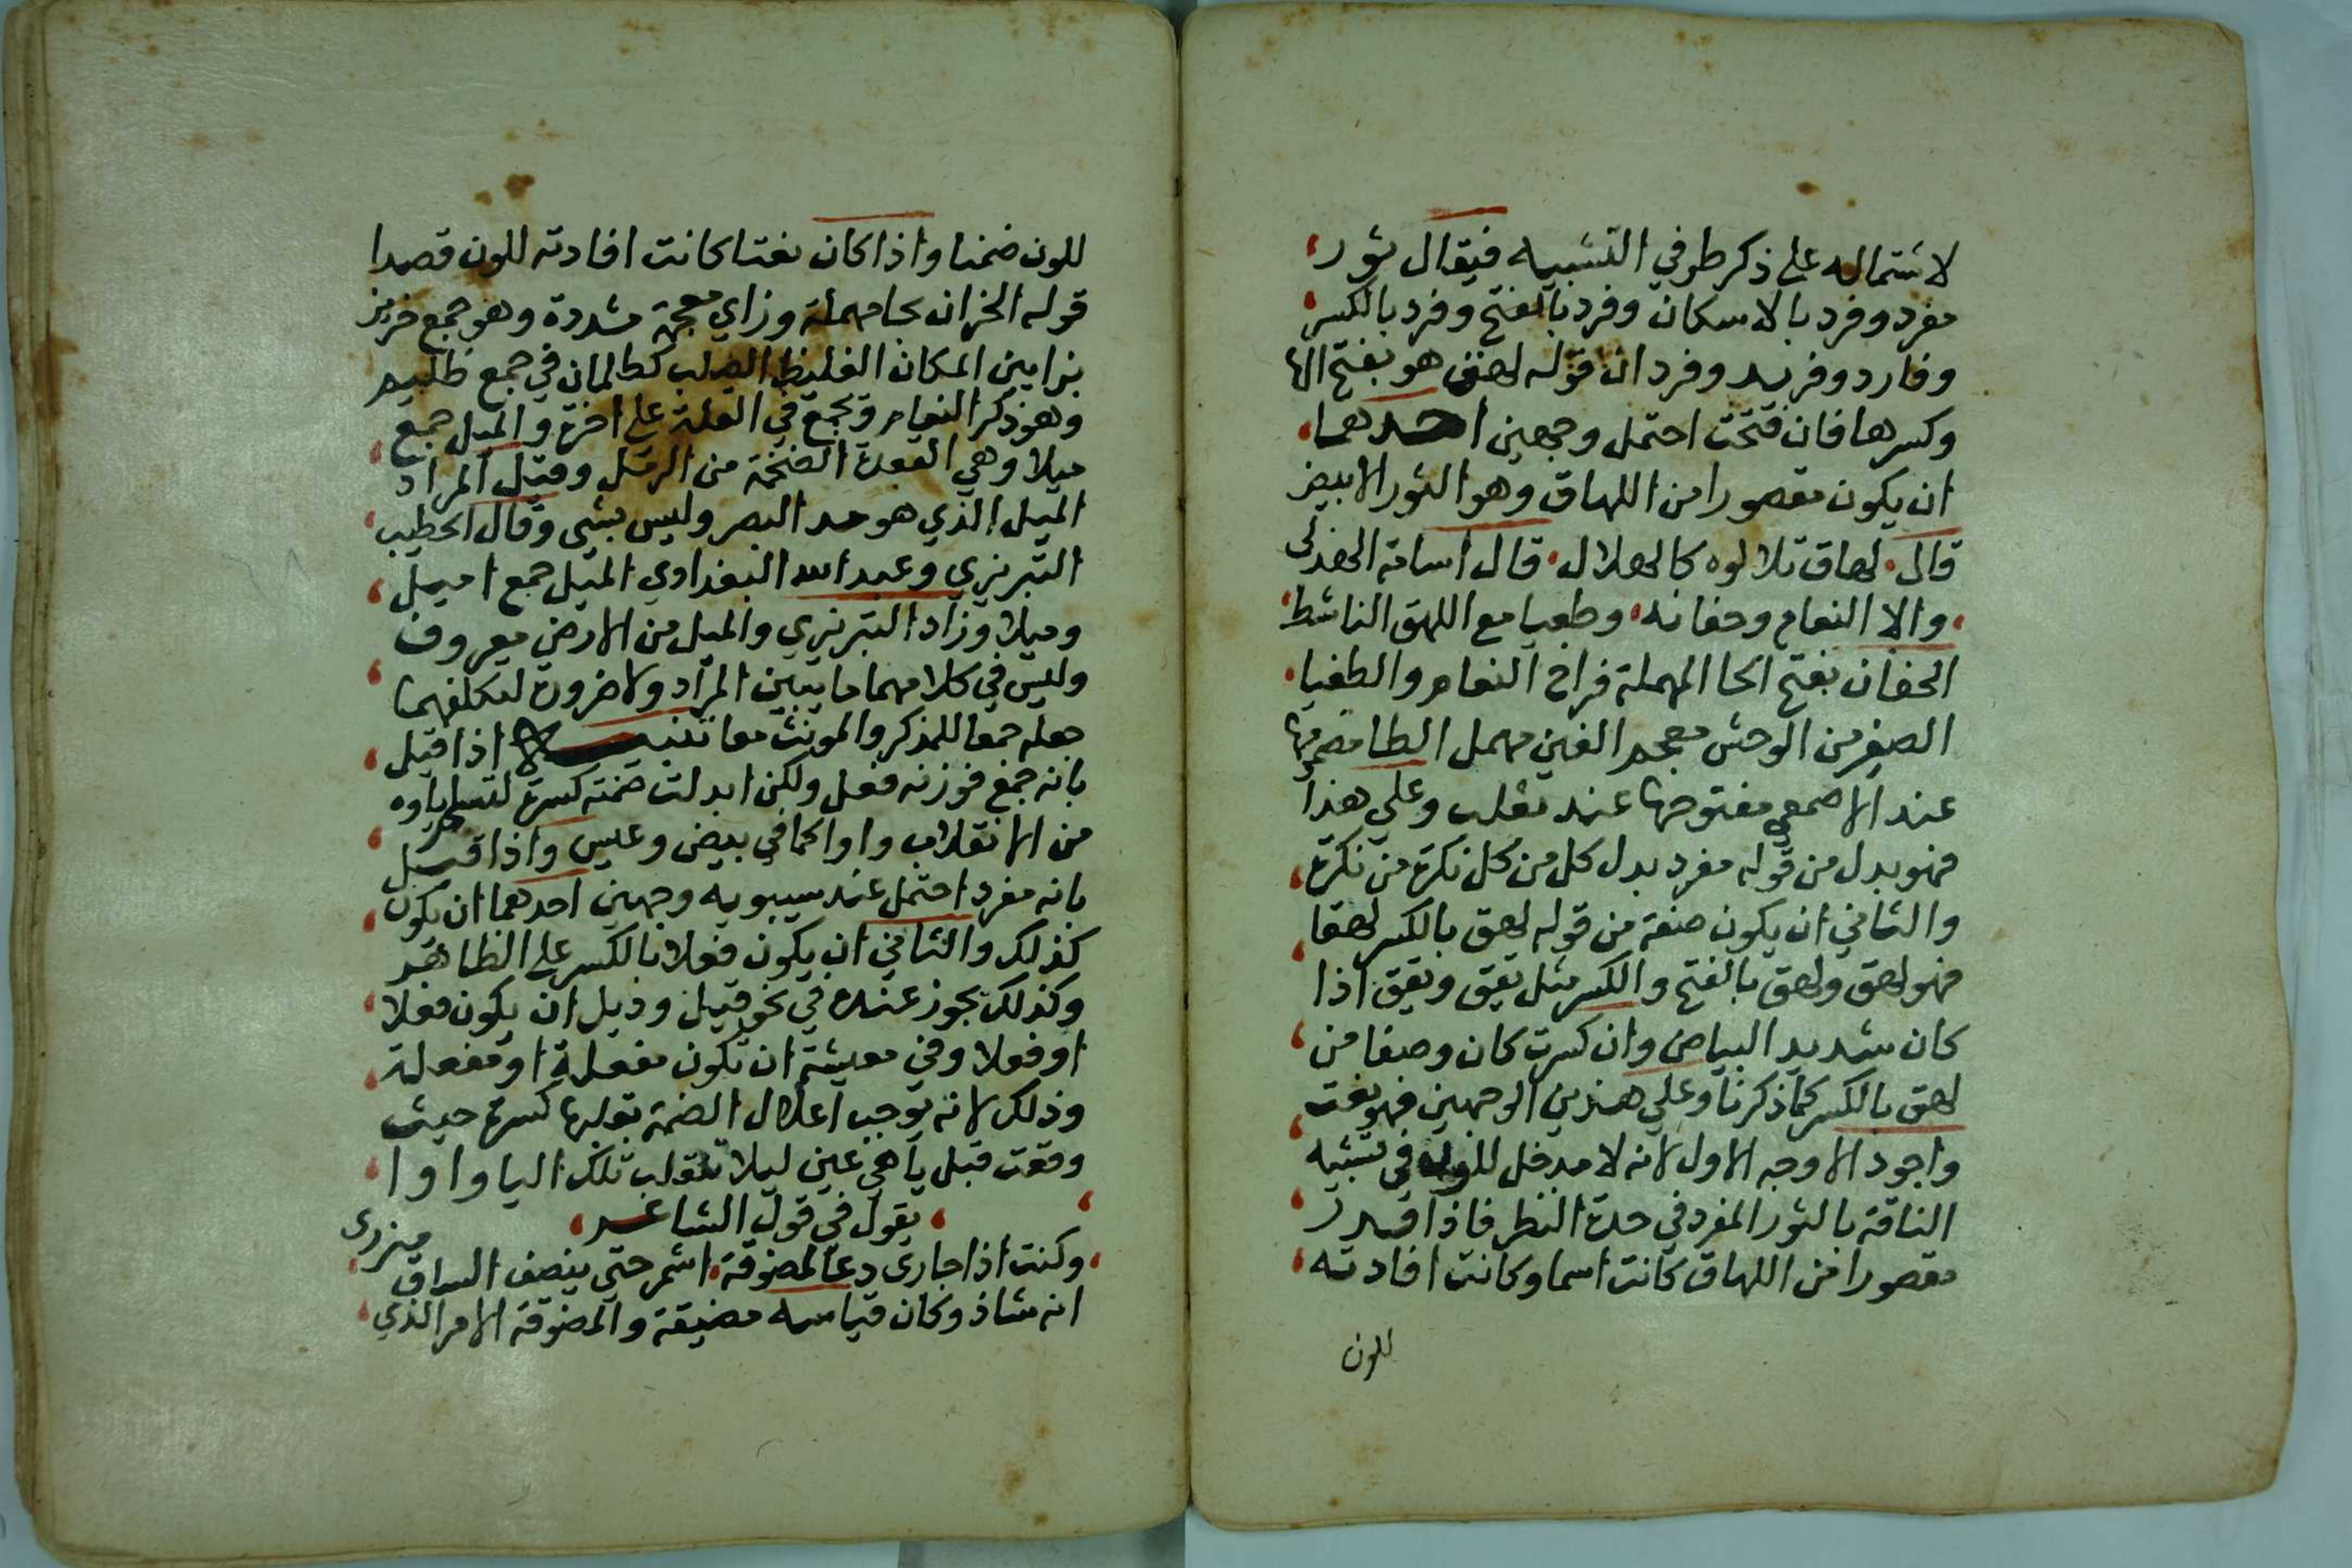 لاشتماله على ذكر طرفي التشبيه فيقال ثور
مفرد وفرد بالاسكان وفرد بالفتح وفرد بالكسر
وفارد وفريد وفردان قوله لهق هو بفتح الها
وكسرها فان فتحت احتمل وجهين احدهما
ان يكون مقصورا من اللهاق وهو الثور الابيض
قال لهاق تلالوه كالهلال قال اسامة الهذلي
والا النعام وحفانه وطغيا مع اللهق الناشط
الحفان بفتح الحا المهملة فراخ النعام والطغيا
الصغير من الوحش معجم الغين مهمل الطا مضمومها
عند الاصمعي مفتوحها عند ثعلب وعلى هذا
فهو بدل من قوله مفرد بدل كل من كل نكرة من نكرة
والثاني ان يكون صفة من قوله لهق بالكسر لهقا
فهو لهق ولهق بالفتح والكسر مثل يقق ويقق اذا
كان شديد البياض وان كسرت كان وصفا من
لهق بالكسر كما ذكرنا وعلى هذين الوجهين فهو نعت
واجود الاوجه الاول لانه لا مدخل للون في تشبيه
الناقة بالثور المفرد في حدة النظر فاذا قدر
مقصورا من اللهاق كانت اسما وكانت افادته
للون
للون ضمنا واذا كان نعتا كانت افادته للون قصدا
قوله الحزان بحا مهملة وزاي معجمة مشددة وهو جمع حزيز
بزايين المكان الغليظ الصلب كظلمان في جمع ظليم
وهو ذكر النعام ويجمع في القلة على احزة والميل جمع
ميلا وهي العقدة الضخمة من الرمل وقيل المراد
الميل الذي هو مد البصر وليس بشى وقال الخطيب
التبريزي وعبد الله البغدادي الميل جمع اميل
وميلا وزاد التبريزي والميل من الارض معروف
وليس في كلامهما ما يبين المراد ولا ضرورة لتكلفهما
جعله جمعا للمذكر والمونث معا تنبيه اذا قيل
بانه جمع فوزنه فعل ولكن ابدلت ضمته كسرة لتسلم ياوه
من الانقلاب واوا كما في بيض وعيس واذا قيل
بانه مفرد احتمل عند سيبويه وجهين احدهما ان يكون
كذلك والثاني ان يكون فعلا بالكسر على الظاهر
وكذلك يجوز عنده في نحو فيل وديل ان يكون فعلا
او فعلا وفي معيشة ان تكون مفعلة او مفعلة
وذلك لانه يوجب اعلال الضمة بقلبها كسرة حيث
وقعت قبل يا هي عين ليلا تنقلب تلك اليا واوا
يقول في قول الشاعر
وكنت اذا جارى دعا لمضوفة اشمر حتى ينصف الساق ميزرى
انه شاذ وكان قياسه مضيفة والمضوفة الامر الذي